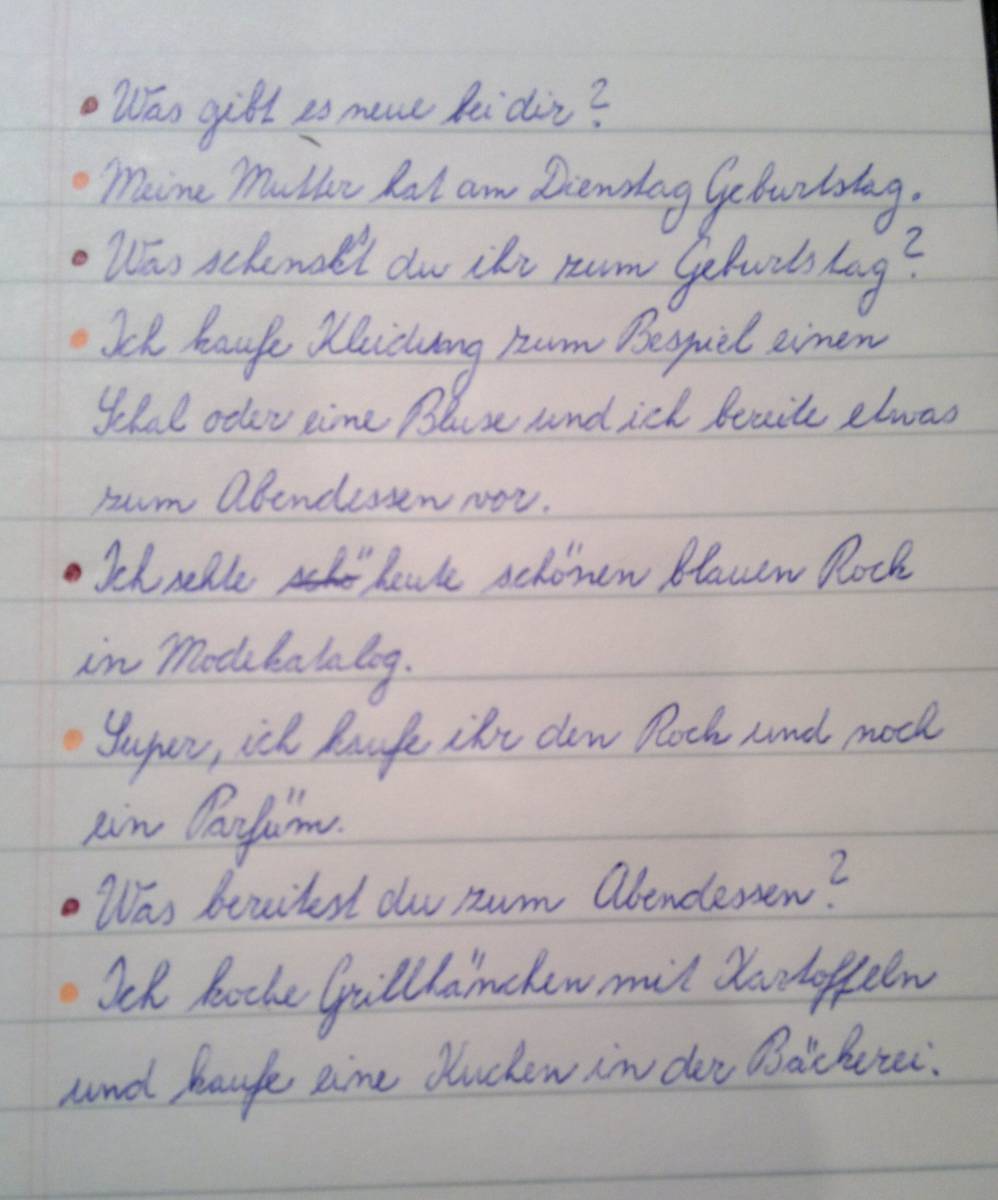 • Was gibt es neue bei dir?
• Meine Mutter hat am Dienstag Geburtstag.
• Was schenskt du ihr zum Geburtstag?
• Ich kaufe Kleidung zum Bespiel einen
Schal oder eine Bluse und ich bereite etwas
zum Abendessen vor.
• Ich sehte schö heute schönen blauen Rock
in Modekatalog.
• Super, ich kaufe ihr den Rock und noch
ein Parfüm.
• Was bereitest du zum Abendessen?
• Ich koche Grillhänchen mit Kartoffeln
und kaufe eine Kuchen in der Bäckerei.